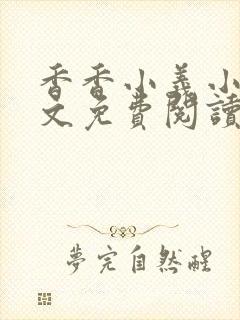 香香小義小
文免費閱讀
夢完自然醒